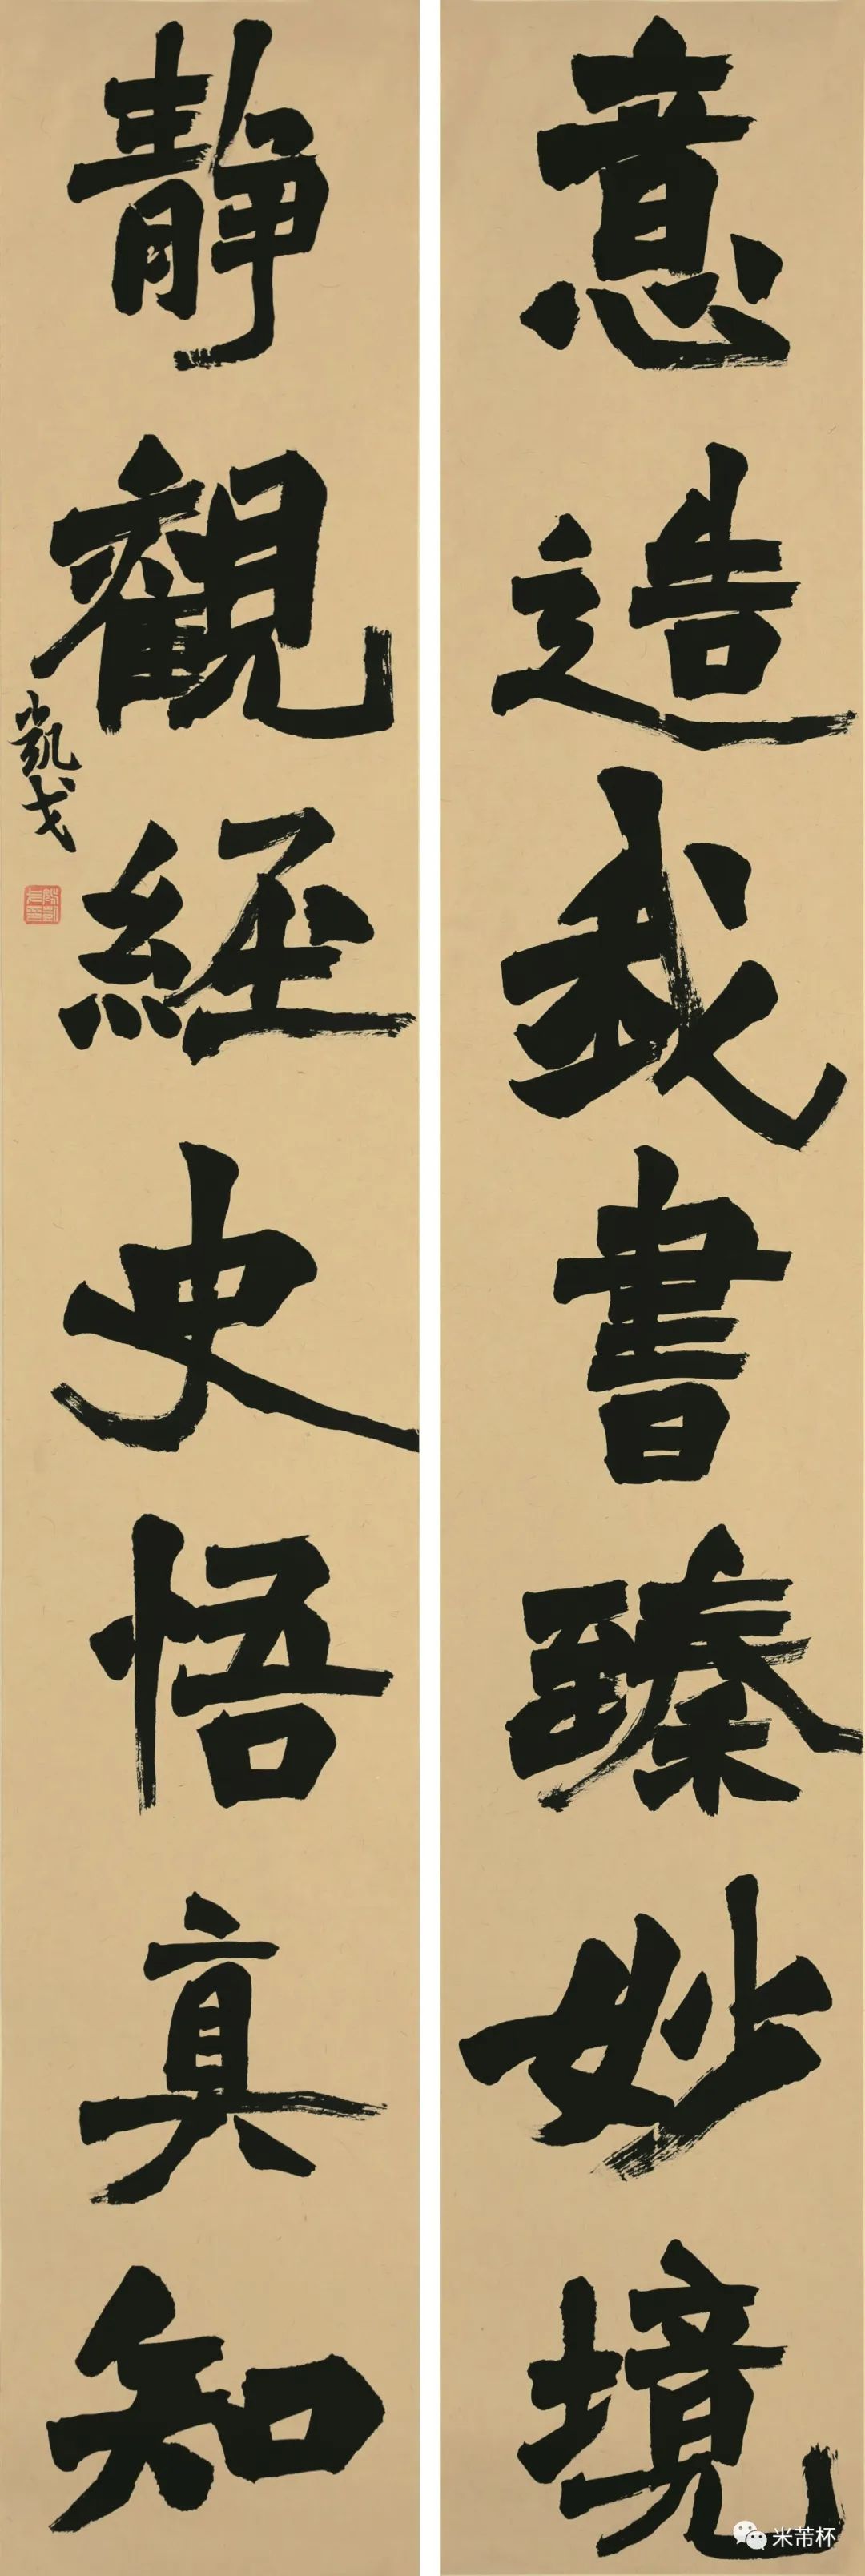 意造我書臻妙境
靜觀經史悟真知
凱戈
米芾杯